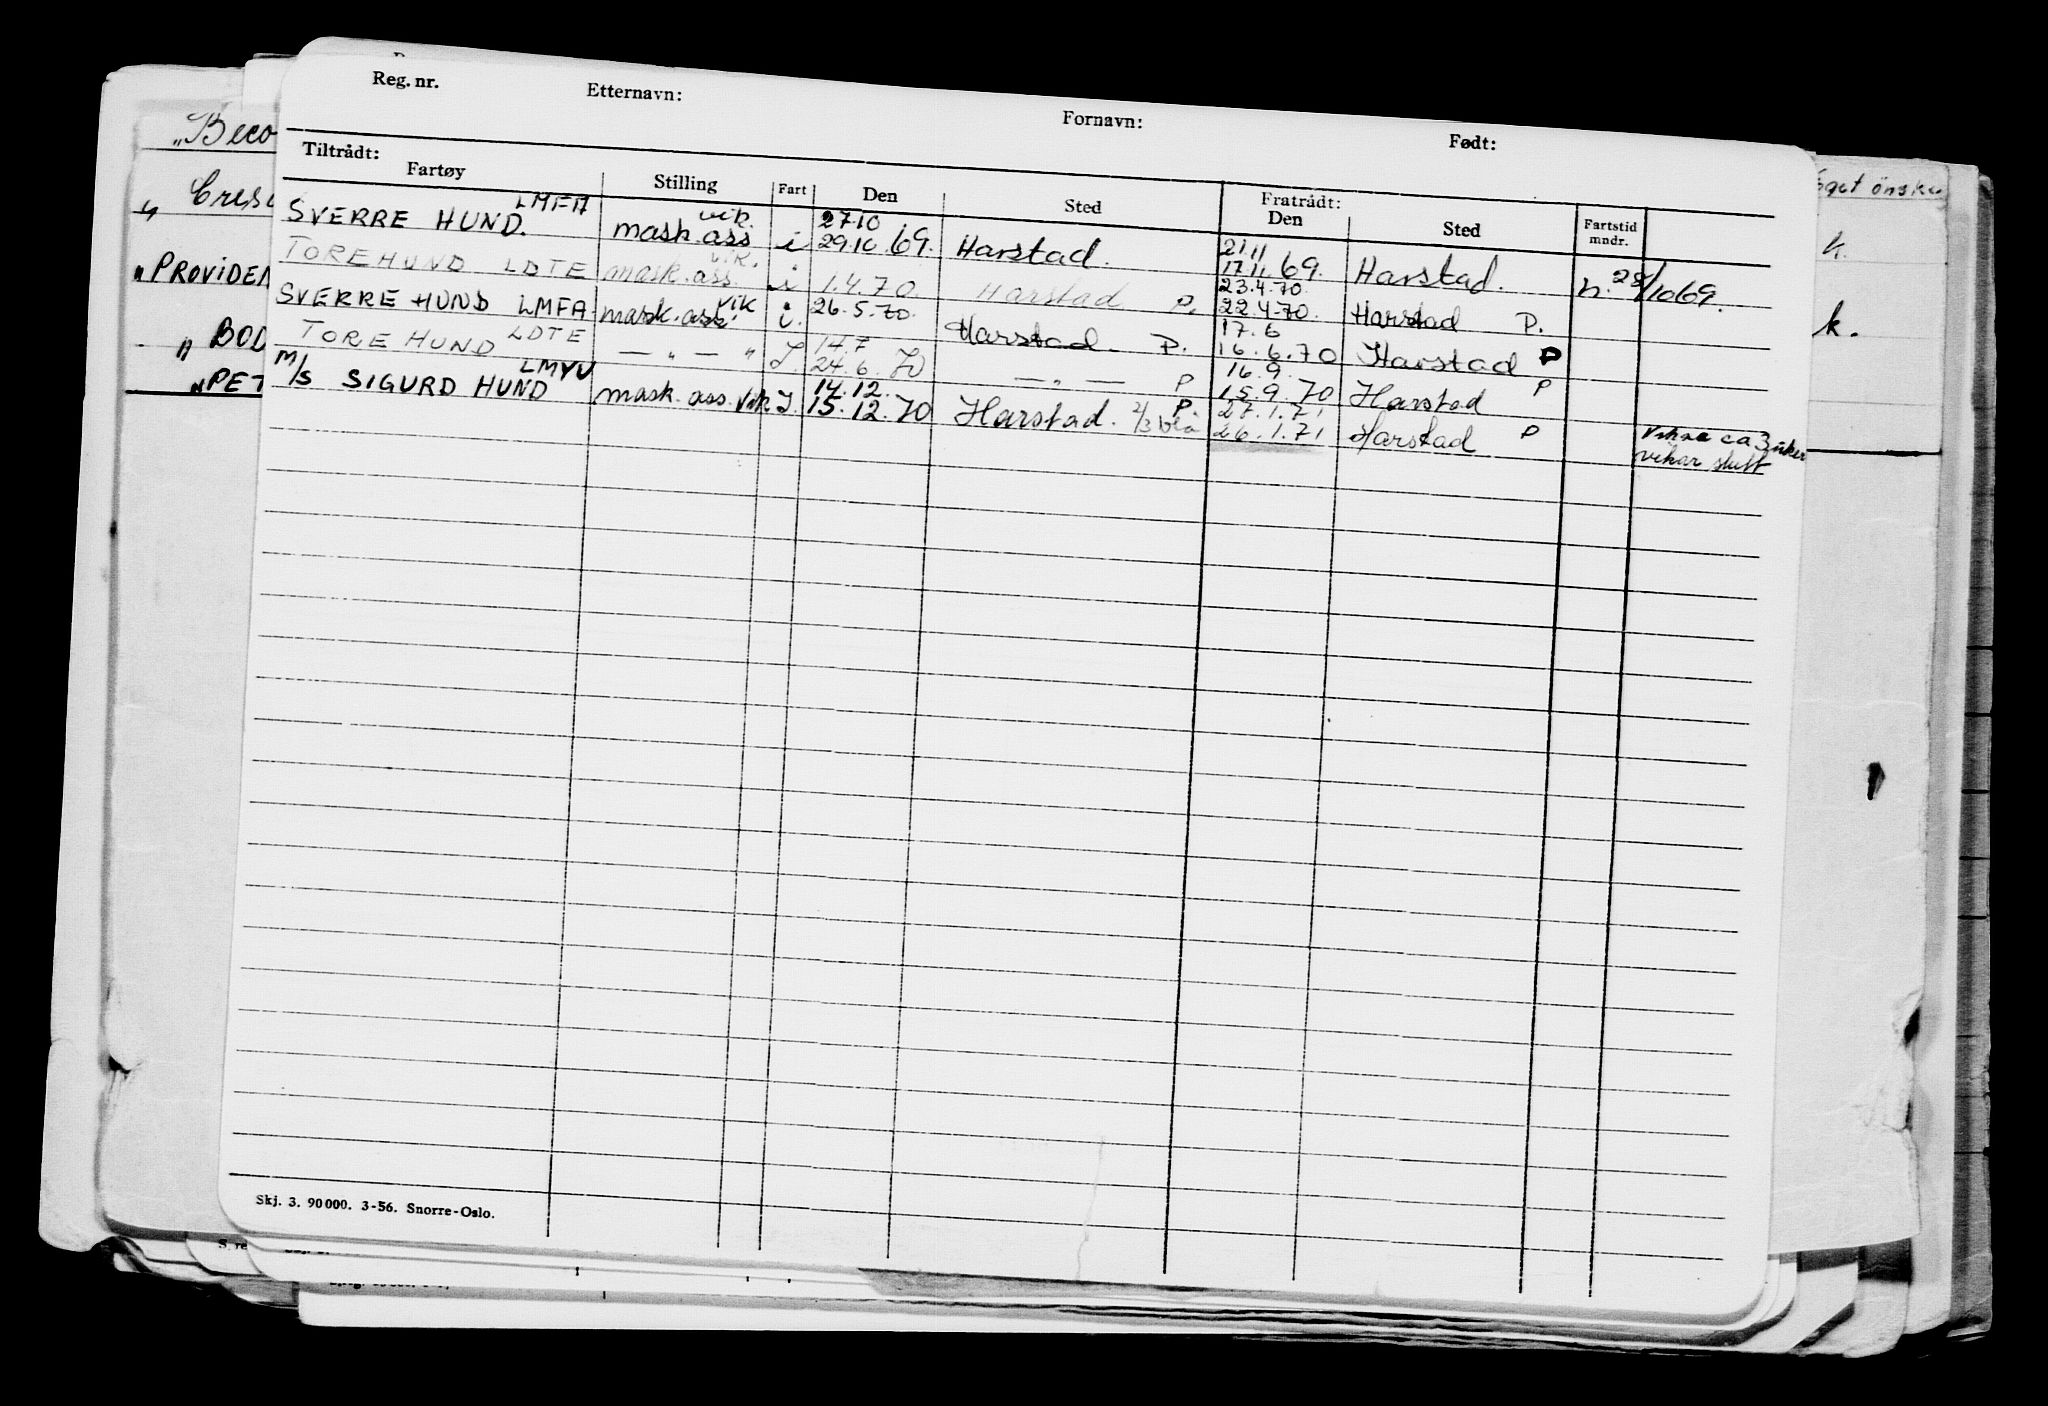 Reg. nr. Etternavn: Fornavn: Født:
Tiltrådt: Fratrådt:
Fartøy Stilling Fart Den Sted Den Sted Fartstid mndr.
SVERRE HUND. LMFA mask. ass vik. i 27.10 29.10 69. Harstad. 21.11 17.11. 69. Harstad. 28/10 69.
TORE HUND LDTE mask. ass. vik. i 1.4.70 Harstad P. 23.4.70. 22.4.70. Harstad P.
SVERRE HUND LMFA mask. ass. vik i. 26.5.70. Harstad. P. 17.6 16.6.70 Harstad P
TORE HUND LDTE — " — " J. 14.7 24.6. 70 — " — P 16.9. 15.9.70 Harstad P
M/S SIGURD HUND LMYU mask. ass. vik J. 14.12. 15.12.70 Harstad. P. 27.1.71 26.1.71 Harstad P ca 3 uker
vikar slutt
„Beco
„ Cresc
„PROVIDEN
„ BOD
„PET
Eget ønske
k.
k.
Skj. 3. 90000. 3-56. Snorre-Oslo.